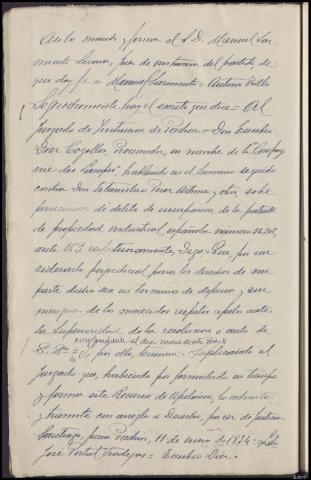 Así lo mandó y firma el Sr. D. Manuel Sar-
miento Lecuna, Juez de instrucción del partido de
que doy fe = Manuel Sarmiento = Antonio
Seguidamente hay el escrito que dice = Al
Juzgado de Instrucción de Padrón = Don Eusebio
Dier Cogollos, Procurador, en nombre de la "Compag
nie des Lampes", hablando en el sumario seguido
contra Don Estanislao Perez Artime y otro, sobre
persecución de delito de usurpación de la patente
de propiedad industrial española número
ante V.S. respetuosamente, Digo: = Que por con
siderarlo perjudicial para los derechos de mi
parte dicho sea en términos de defensa, y sin
mengua de los merecidos respetos apelo ante
la Superioridad de la resolución o auto de
S. Sª = Y por ello, termino: = Suplicando al
Juzgado que, habiendo por formulado en tiempo
y forma este Recurso de Apelación, lo admita
y tramite con arreglo a Derecho, por ser de justicia
Santiago, para Padrón, 11 de enero de 1924 =
José Portal Fradejas = Eusebio Dier =